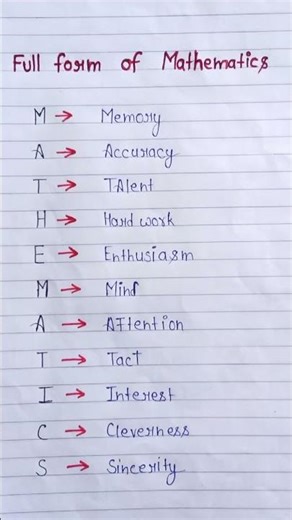 Full form of Mathematics
M → Memory
A → Accuracy
T → TAlent
H → Hard work
E → Enthusiasm
M → Mind
A → Attention
T → Tact
I → Interest
C → Cleverness
S → Sincerity